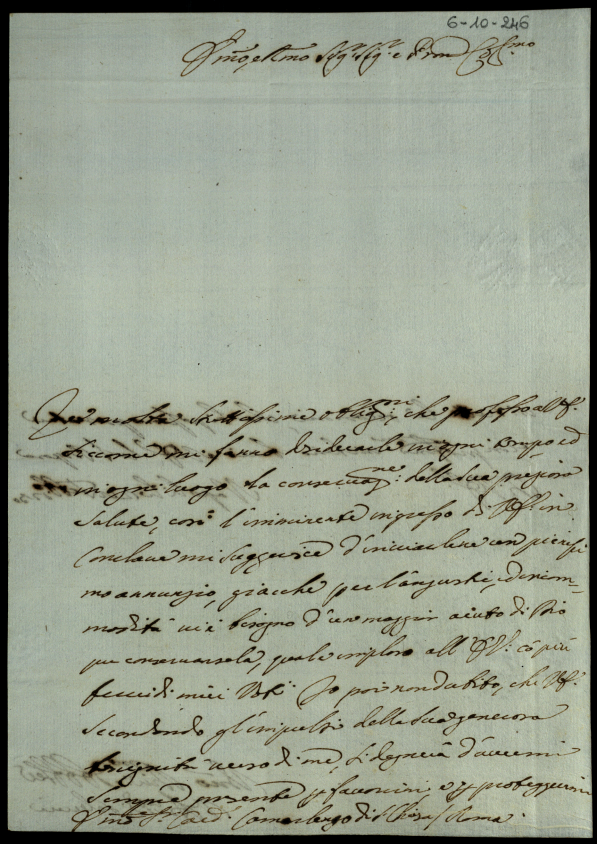 6-10-246
Em̃o, e Rmo Sigr. Sigr. e Pron Colmo
molte strettissime obligni, che professo all'E.V.
siccome mi fanno desiderarle in ogni tempo ed
in ogni luogo la conservazne. della sua preziosa
salute, così l'imminente ingresso di V.E. in
Conclave mi suggerisce d'inviarlene un pienissi
mo annunzio, giacche per l'angustie, ed incom-
modità vi è bisogno d'un maggior aiuto di Dio
per conservarsela, quale imploro all' E.V. co' più
fervidi miei Voti. Io poi non dubito, che V.E.
secondando gl'impulsi della sua generosa
benignità verso di me, si degnerà d'avermi
sempre presente p favorirmi, e p proteggermi
Em̃o Sr. Card. Camerlengo di S. Chiesa Roma.